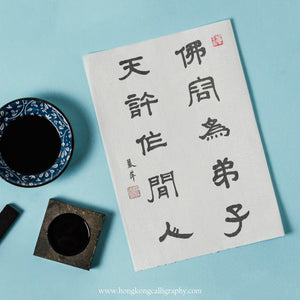 佛容為弟子
天許作閒人
www.hongkongcalligraphy.com